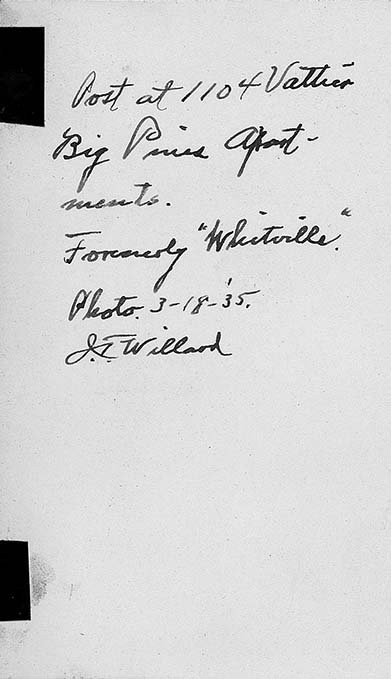 Post at 1104 Vattier
Big Pines Apart-
ments.
Formerly "Whitville."
Photo. 3-18-'35.
J.T. Willard